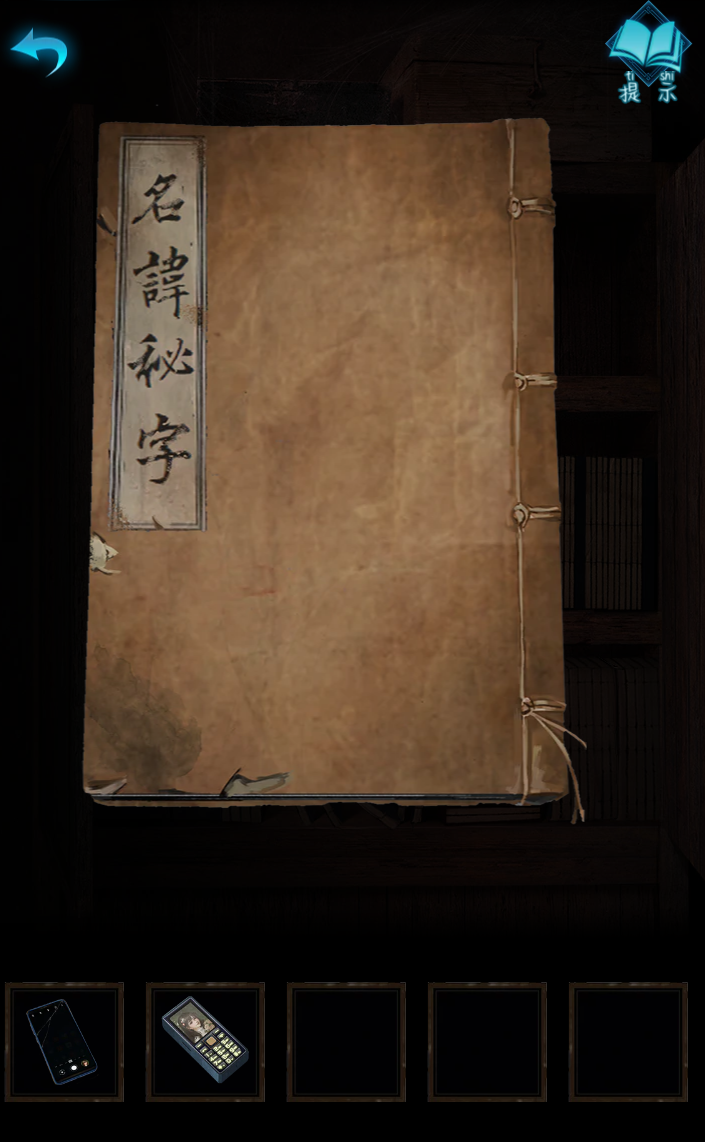 名諱秘字
ti shi
提示